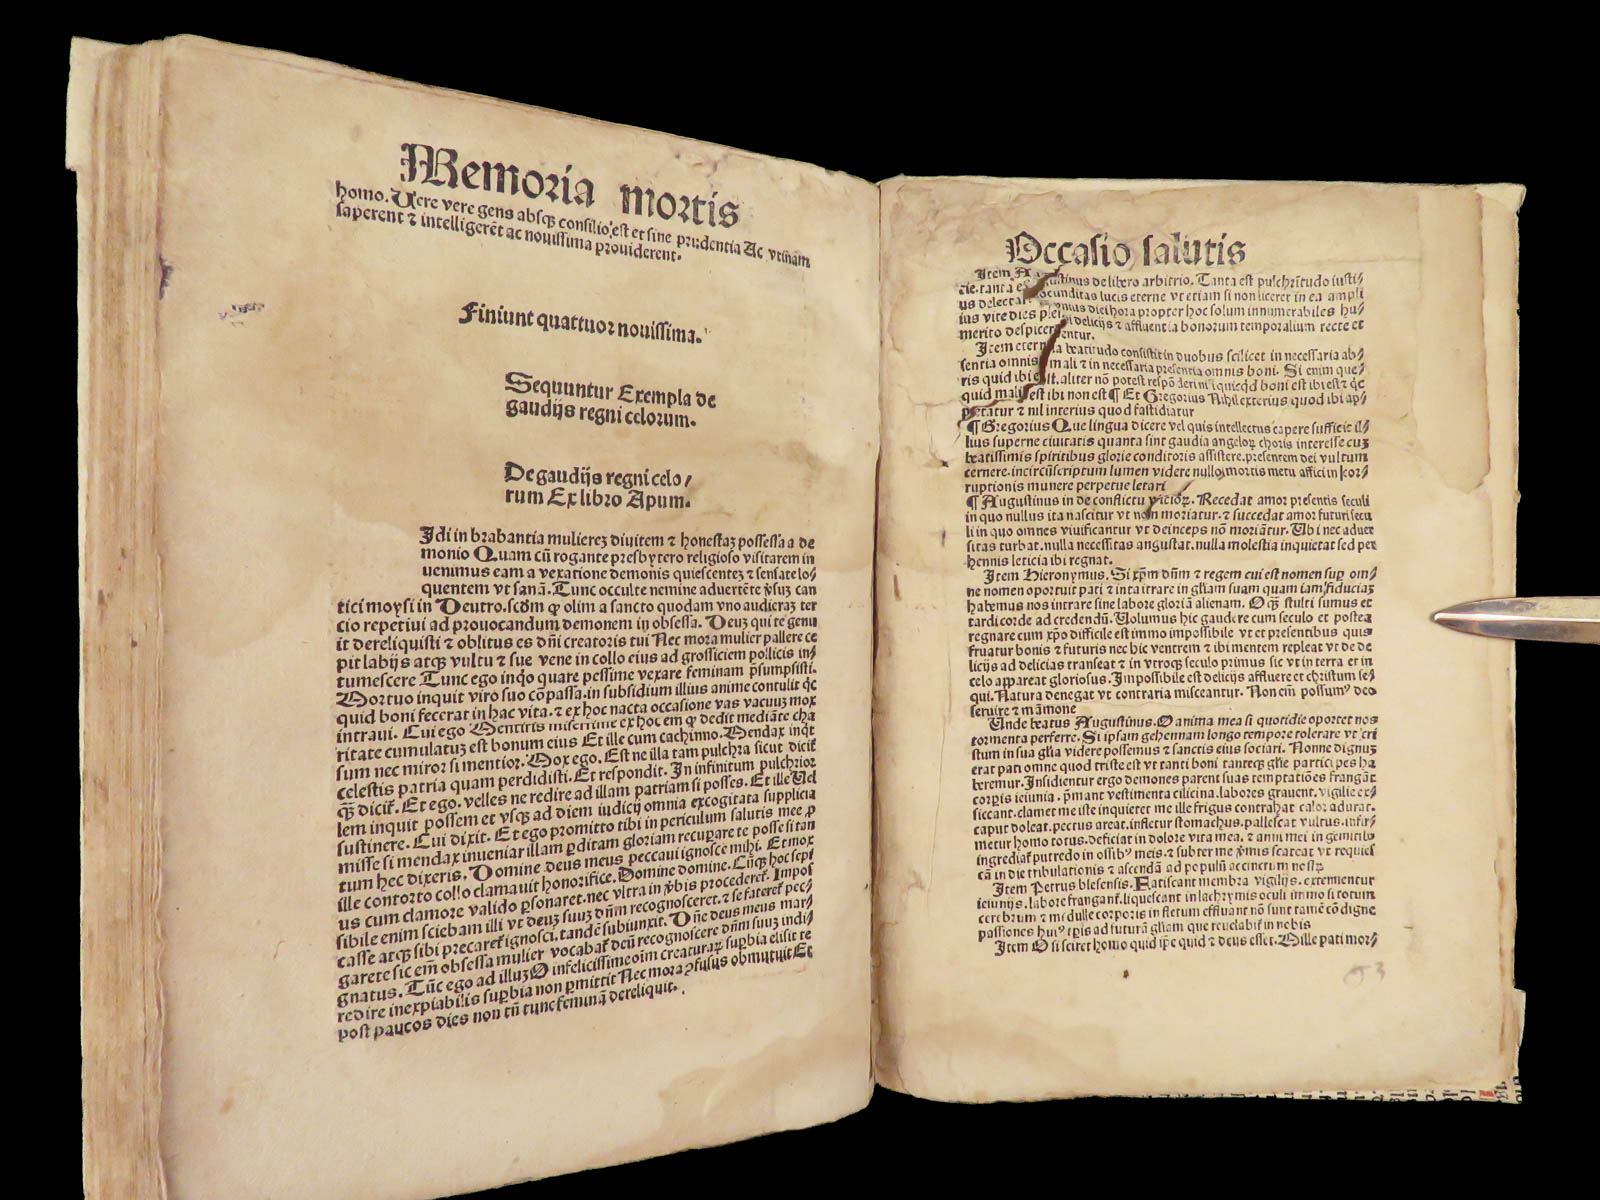 Memoria mortis
homo. Uere vere gens absqꝫ consilio est et sine prudentia Ac vtinam
saperent ⁊ intelligerēt ac nouissima prouiderent.
Finiunt quattuor nouissima.
Sequuntur Exempla de
gaudijs regni celorum.
De gaudijs regni celo/
rum Ex libro Apum.
Idi in brabantia muliereꝫ diuitem ⁊ honestaꝫ possessa a de
monio Quam cū rogante presbytero religioso visitarem in
uenimus eam a vexatione demonis quiescenteꝫ ⁊ sensate lo/
quentem vt sanā. Tunc occulte nemine aduertēte ꝟsuꝫ can
tici moysi in Deutro. scōm ꝙ olim a sancto quodam vno audieraꝫ ter
cio repetiui ad prouocandum demonem in obsessa. Deuꝫ qui te genu
it dereliquisti ⁊ oblitus es dn̄i creatoris tui Nec mora mulier pallere ce
pit labijs atqꝫ vultu ⁊ sue vene in collo eius ad grossiciem pollicis in/
tumescere Tunc ego inq̄o quare pessime vexare feminam p̄sumpsisti.
Mortuo inquit viro suo cōpassa. in subsidium illius anime contulit qc̄
quid boni fecerat in hac vita. ⁊ ex hoc nacta occasione vas vacuuꝫ mox
intraui. Cui ego Mentiris miserrime ex hoc em̄ ꝙ dedit mediāte cha
ritate cumulatuꝫ est bonum eius Et ille cum cachinno. Mendax inq̄t
sum nec miror si mentior. Mox ego. Est ne illa tam pulchra sicut dicit̄
celestis patria quam perdidisti. Et respondit. In infinitum pulchrior
qꝫ̄ dicit̄. Et ego. velles ne redire ad illam patriam si posses. Et ille Uel
lem inquit possem et vsqꝫ ad diem iudicij omnia excogitata supplicia
sustinere. Cui dixit. Et ego promitto tibi in periculum salutis mee ꝓ
misse si mendax inueniar illam ꝑditam gloriam recuꝑare te posse si tan
tum hec dixeris. Domine deus meus peccaui ignosce mihi. Et mox
ille contorto collo clamauit honorifice. Domine domine. Cūqꝫ hoc sepi
us cum clamore valido ꝑsonaret. nec vltra in ꝟbis procederet̄. Impos
sibile enim sciebam illi vt deuꝫ suuꝫ dn̄m recognosceret. ⁊ se fateret̄ pec/
casse atqꝫ sibi precaret̄ ignosci. tandē subiunxit. Dn̄e deus meus mar/
garete sic em̄ obsessa mulier vocabat̄ deū recognoscere dn̄m suuꝫ indi/
gnatus. Tūc ego ad illuꝫ O infelicissime oīm creaturaꝝ suꝑbia elisit te
redire inexpiabilis suꝑbia non ꝑmittit Nec mora ꝯfusus obmutuit Et
post paucos dies non tn̄ tunc feminā dereliquit.
Occasio salutis
Item Augustinus de libero arbitrio. Tanta est pulchritudo iusti/
cie. tanta iocunditas lucis eterne vt etiam si non liceret in ea ampli
us delectari diei hora propter hoc solum innumerabiles hu/
ius vite dies pleni delicijs ⁊ affluentia bonorum temporalium recte et
merito despicerentur.
Item eterna beatitudo consistit in duobus scilicet in necessaria ab/
sentia omnis mali ⁊ in necessaria presentia omnis boni. Si enim que/
ris quid ibi est. aliter nō potest respōderi nisi quicqd boni est ibi est ⁊ qc̄
quid mali est ibi non est ¶ Et Gregorius Nihil exterius quod ibi ap/
petatur ⁊ nil interius quod fastidiatur
¶ Gregorius Que lingua dicere vel quis intellectus capere sufficie il/
lius superne ciuitatis quanta sint gaudia angeloꝝ choris interesse cuꝫ
beatissimis spiritibus glorie conditoris assistere. presentem dei vultum
cernere. incircūscriptum lumen videre nulloꝫ mortis metu affici in icor/
ruptionis munere perpetue letari
¶ Augustinus in de conflictu vicioꝝ. Recedat amor presentis seculi
in quo nullus ita nascitur vt non moriatur. ⁊ succedat amor futuri secu
li in quo omnes viuificantur vt deinceps nō moriāt̄ur. Ubi nec aduer
sitas turbat. nulla necessitas angustat. nulla molestia inquietat sed per
hennis leticia ibi regnat.
Item Hieronymus. Si xp̄m dn̄m ⁊ regem cui est nomen suꝑ om/
ne nomen oportuit pati ⁊ ita itrare in gl̄iam suam quam iam fiduciaꝫ
habemus nos intrare sine labore gloriā alienam. O qꝫ̄ stulti sumus et
tardi corde ad credendū. Uolumus hic gaudere cum seculo et postea
regnare cum xp̄o difficile est immo impossibile vt et presentibus quis
fruatur bonis ⁊ futuris nec hic ventrem ⁊ ibi mentem repleat vt de de
licijs ad delicias transeat ⁊ in vtroqꝫ seculo primus sic vt in terra et in
celo appareat gloriosus. Impossibile est delicijs affluere et christum se/
qui. Natura denegat vt contraria misceantur. Non em̄ possumꝰ deo
seruire ⁊ māmone
Unde beatus Augustinus. O anima mea si quotidie oportet nos
tormenta perferre. Si ipsam gehennam longo tempore tolerare vt cri
stum in sua gl̄ia videre possemus ⁊ sanctis eius sociari. Nonne dignuꝫ
erat pati omne quod triste est vt tanti boni tanteqꝫ gl̄ie participes ha
beremur. Insidientur ergo demones parent suas temptatiōes frangāt
corpꝰis ieiunia. p̄mant vestimenta cilicina. labores grauent. vigilie ex/
siccant. clamet me iste inquietet me ille frigus contrahat calor adurat.
caput doleat. pectus areat. infletur stomachus. pallescat vultus. infir/
metur homo totus. deficiat in dolore vita mea. ⁊ anni mei in gemitibꝰ
ingrediat̄ putredo in ossibꝰ meis. ⁊ subter me ꝟmis scateat vt requies
cā in die tribulationis ⁊ ascendā ad populū accinctum nostꝝ
Item Petrus blesensis. Fatiscant membra vigilijs. extenuentur
ieiunijs. labore frangant̄. liquescant in lachrymis oculi immo si totum
cerebrum ⁊ medulle corporis in fletum effluant nō sunt tamē cōdigne
passiones huiꝰ tp̄is ad futurā gl̄iam que reuelabit̄ in nobis
Item O si sciret homo quid ip̄e quid ⁊ deus esset. Mille pati mor/